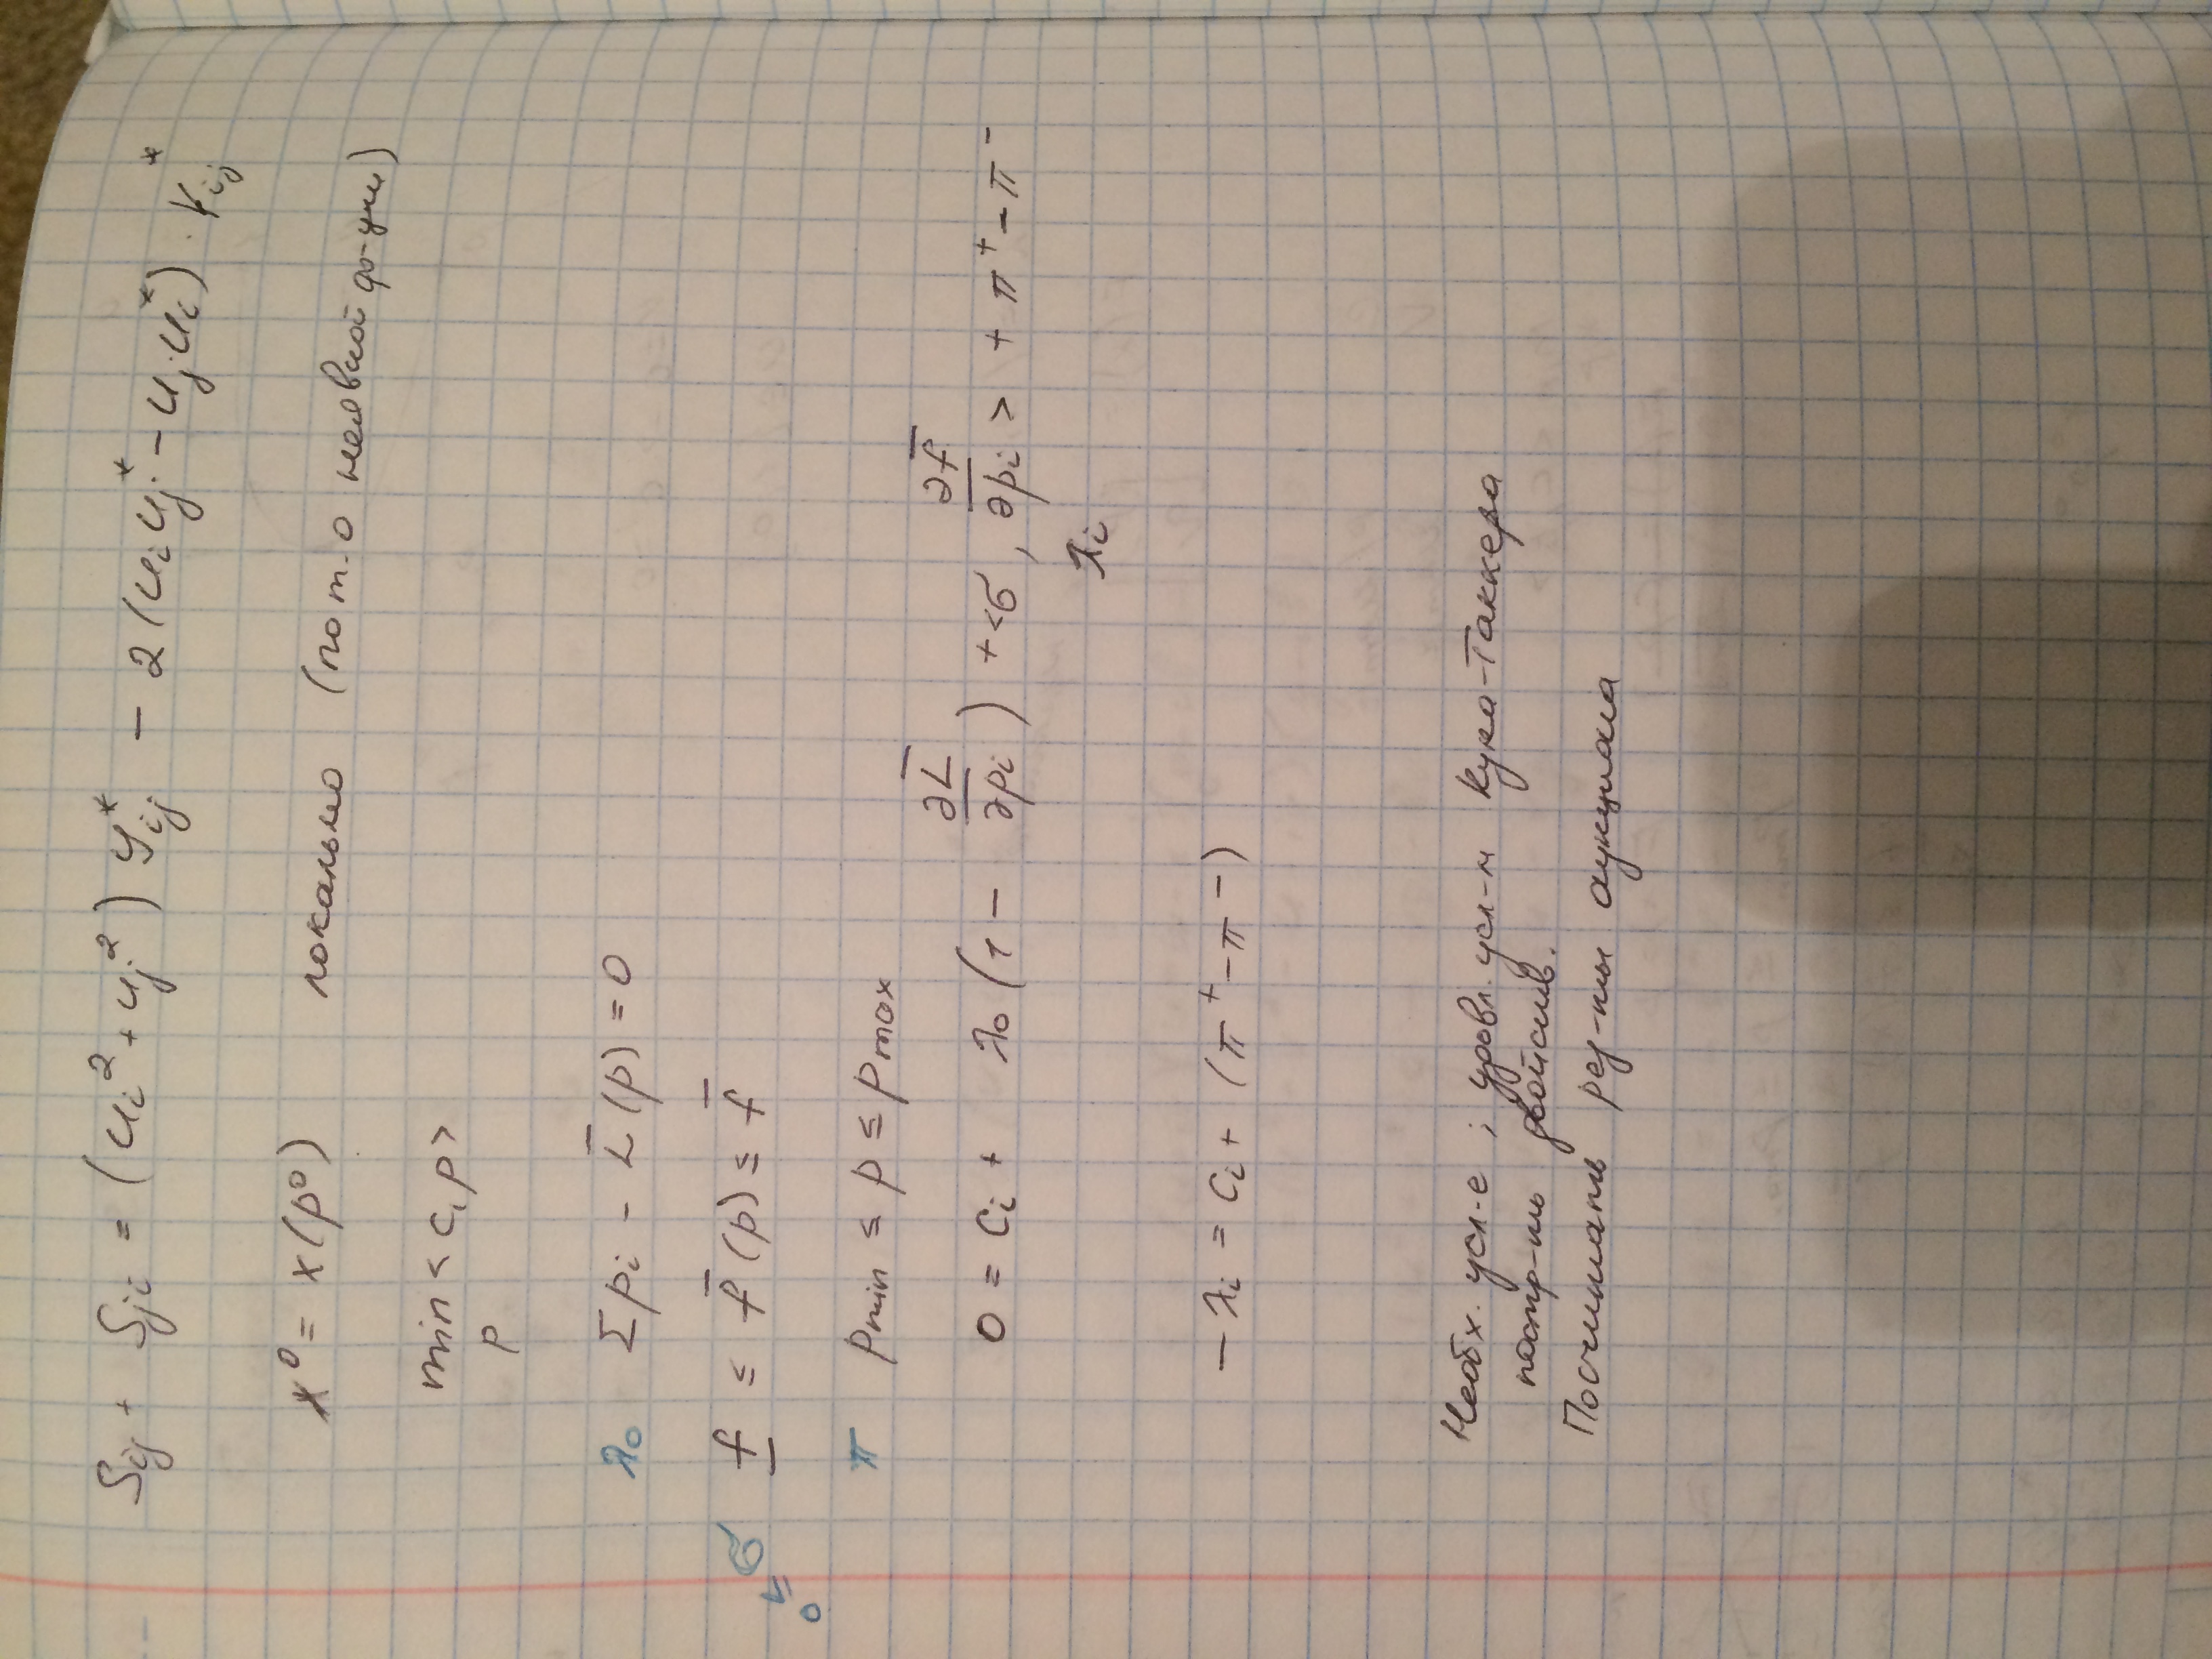 Sij + Sji = (Ui² + Uj²) Yij* − 2 (UiUj* − UjUi*) · Kij*
x⁰ = x(p⁰) локально (по т. о неявной ф-ции)
min < c, p >
p
λ₀ Σ pi − L̄(p) = 0
σ f̲ ≤ f̄(p) ≤ f̄
0
π pmin ≤ p ≤ pmax
0 = ci + λ₀ (1 − ∂L̄/∂pi) + <σ, ∂f̄/∂pi> + π⁺ − π⁻
λi
− λi = ci + (π⁺ − π⁻)
Необх. усл-е ; уровл. усл-м Куна-Таккера
постр-ть двойств.
Посчитать рез-ты аукциона